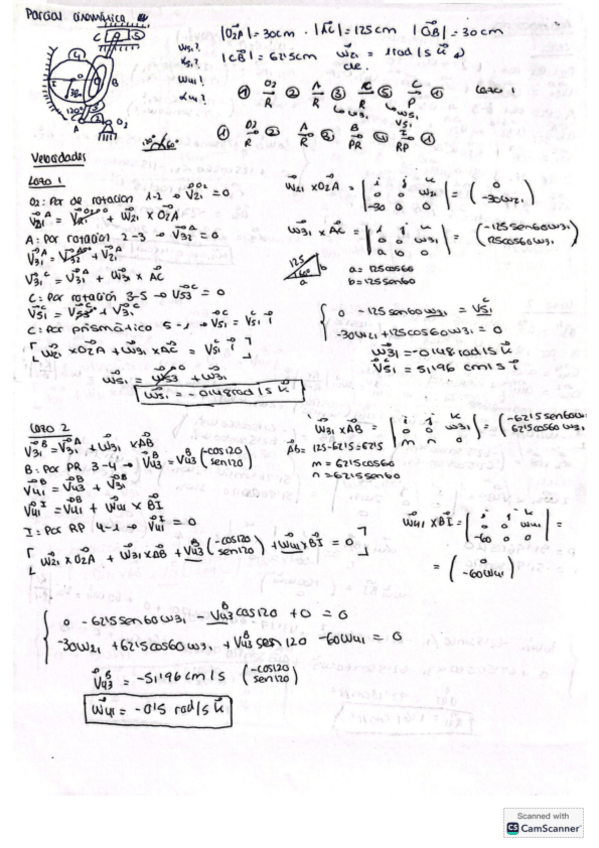 Parcial cinemática
|O₂A| = 30cm · |AC| = 125cm |OB| = 30cm
|CB| = 62'5cm ω₂₁ = 1rad/s k
cte.
ω₅₁?
α₅₁?
ω₄₁?
α₄₁?
① O₂ R ② A R ③ C R ⑤ C P ① Lazo 1
① O₂ R ② A R ③ B PR ④ I RP ①
Velocidades
Lazo 1
O₂: Par de rotación 1-2 → V₂₁^O₂ = 0
V₂₁^A = V₂₁^O₂ + ω₂₁ x O₂A
A: Par rotación 2-3 → V₃₂^A = 0
V₃₁^A = V₃₂^A + V₂₁^A
V₃₁^C = V₃₁^A + ω₃₁ x AC
C: Par rotación 3-5 → V₅₃^C = 0
V₅₁^C = V₅₃^C + V₃₁^C
C: Par prismático 5-1 → V₅₁^C = V₅₁^C i
[ω₂₁ x O₂A + ω₃₁ x AC = V₅₁^C i]
ω₅₁ = ω₅₃ + ω₃₁
ω₅₁ = -0'48rad/s k
ω₂₁ x O₂A = | i j k ; 0 0 ω₂₁ ; -30 0 0 | = ( 0 ; -30ω₂₁ )
ω₃₁ x AC = | i j k ; 0 0 ω₃₁ ; a b 0 | = ( -125sen60ω₃₁ ; 125cos60ω₃₁ )
125 60 a b
a = 125cos60
b = 125sen60
{ 0 - 125sen60ω₃₁ = V₅₁^C
-30ω₂₁ + 125cos60ω₃₁ = 0
ω₃₁ = -0'48rad/s k
V₅₁^C = 51'96 cm/s i
Lazo 2
V₃₁^B = V₃₁^A + ω₃₁ x AB
B: Par PR 3-4 → V₄₃^B = V₄₃^B ( -cos120 ; sen120 )
V₄₁^B = V₄₃^B + V₃₁^B
V₄₁^I = V₄₁^B + ω₄₁ x BI
I: Par RP 4-1 → V₄₁^I = 0
[ω₂₁ x O₂A + ω₃₁ x AB + V₄₃^B ( -cos120 ; sen120 ) + ω₄₁ x BI = 0]
ω₃₁ x AB = | i j k ; 0 0 ω₃₁ ; m n 0 | = ( -62'5sen60ω₃₁ ; 62'5cos60ω₃₁ )
AB = 125-62'5=62'5
m = 62'5cos60
n = 62'5sen60
ω₄₁ x BI = | i j k ; 0 0 ω₄₁ ; -60 0 0 | =
= ( 0 ; -60ω₄₁ )
{ 0 - 62'5sen60ω₃₁ - V₄₃^B cos120 + 0 = 0
-30ω₂₁ + 62'5cos60ω₃₁ + V₄₃^B sen120 - 60ω₄₁ = 0
V₄₃^B = -51'96 cm/s ( -cos120 ; sen120 )
ω₄₁ = -0'5 rad/s k
Scanned with
CS CamScanner